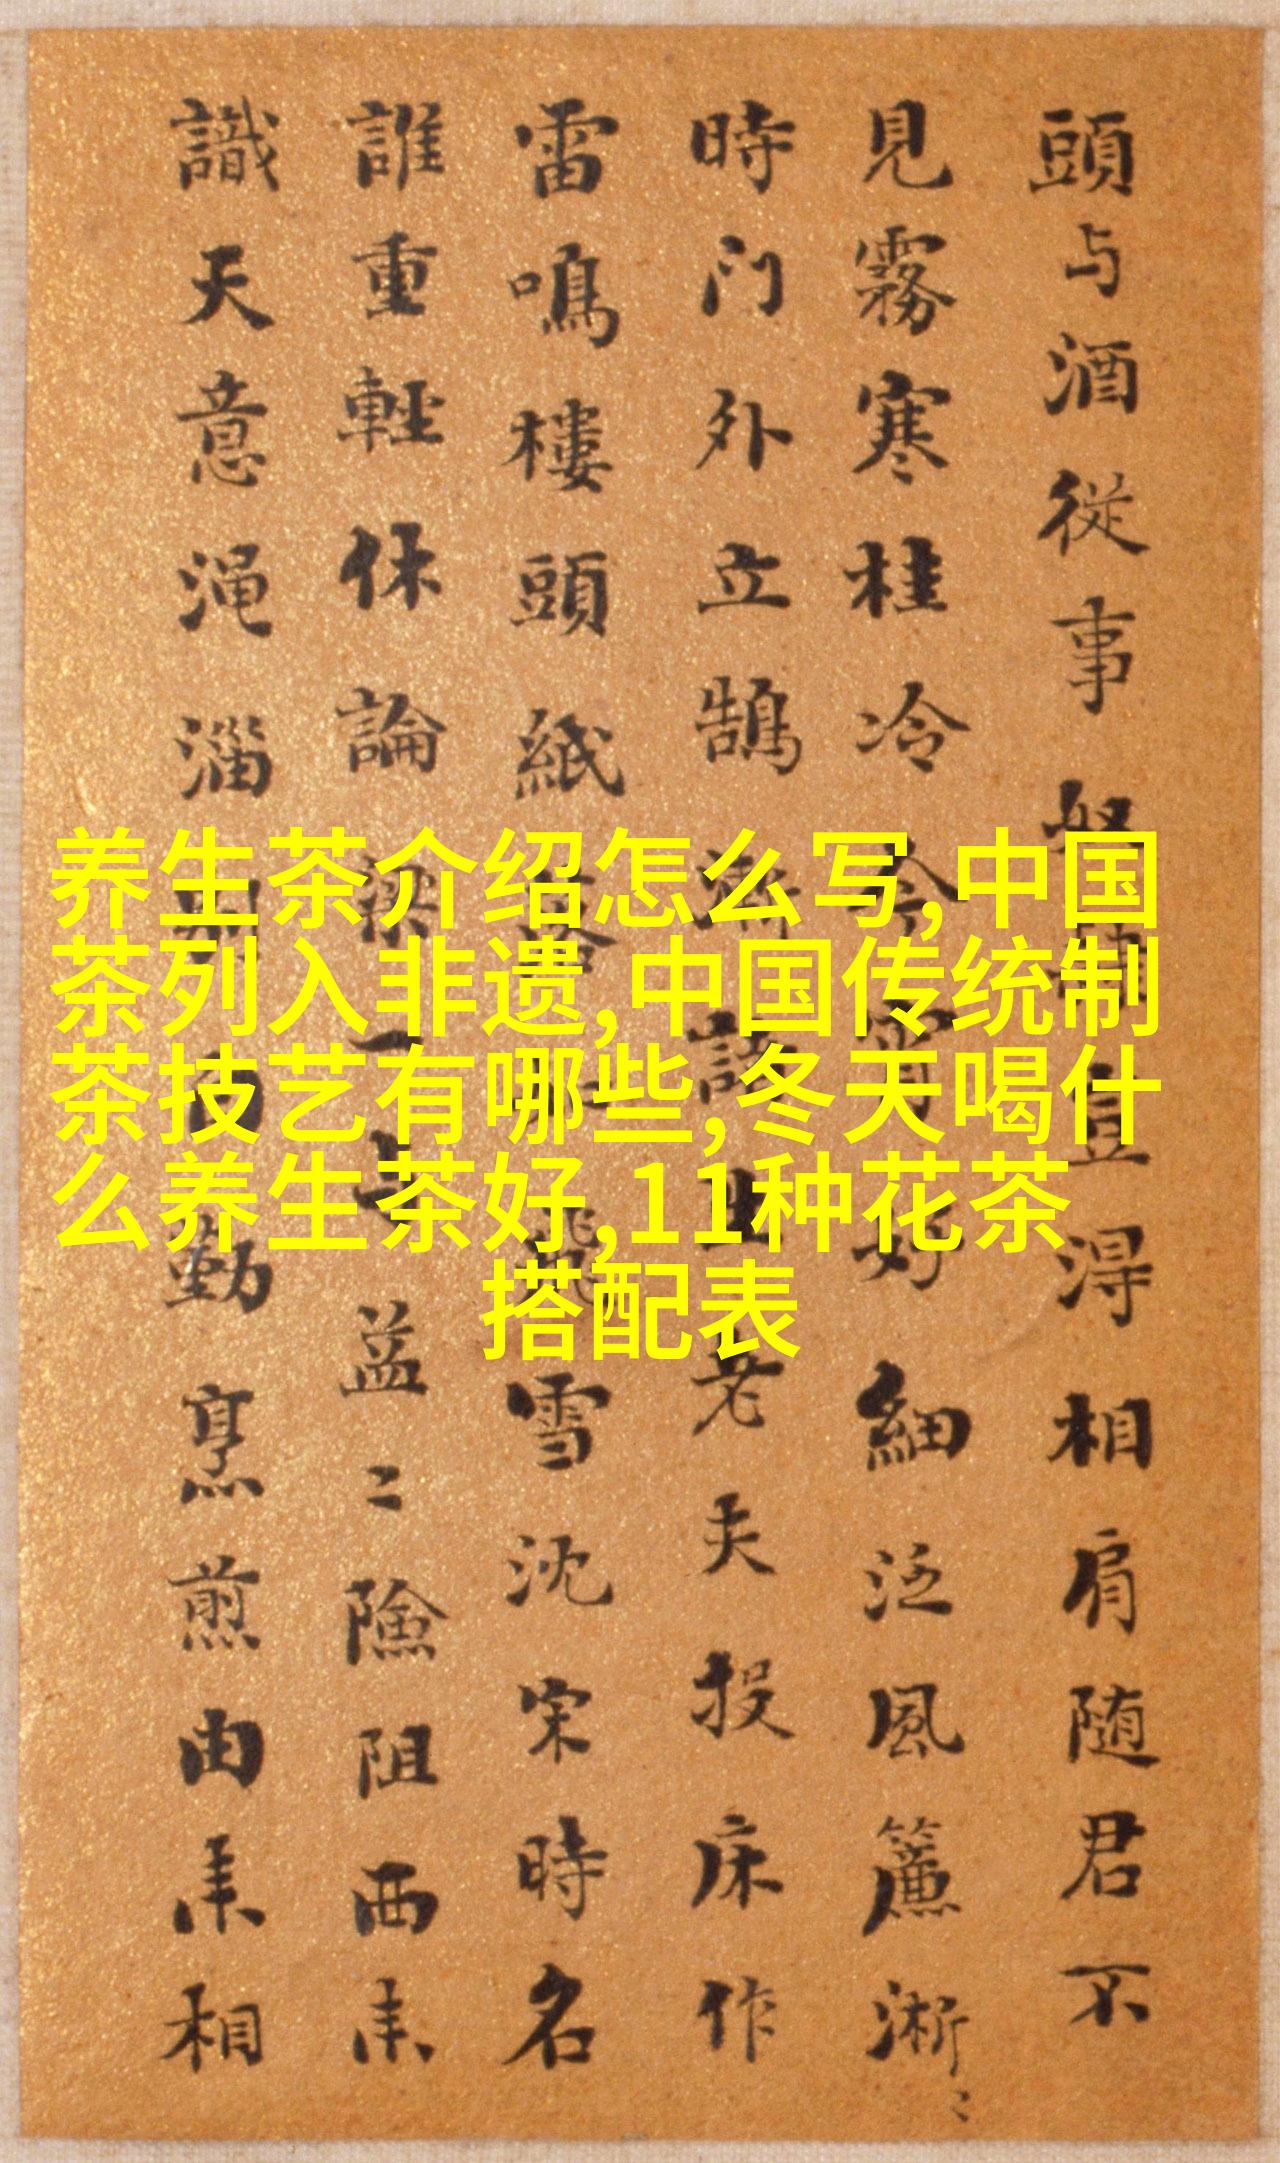 頭与酒從事奴
豆得相肩随君不
見霧寒桂冷
好細泛風簾淅〻
時门外立鵠
老夫投床作
雷鳴樓頭紙
雪沈宋時名
誰重輕休論
益〻險阻西来
識天意渑淄
勤烹煎由来相
养生茶介绍怎么写,中国
茶列入非遗,中国传统制
茶技艺有哪些,冬天喝什
么养生茶好,11种花茶
搭配表